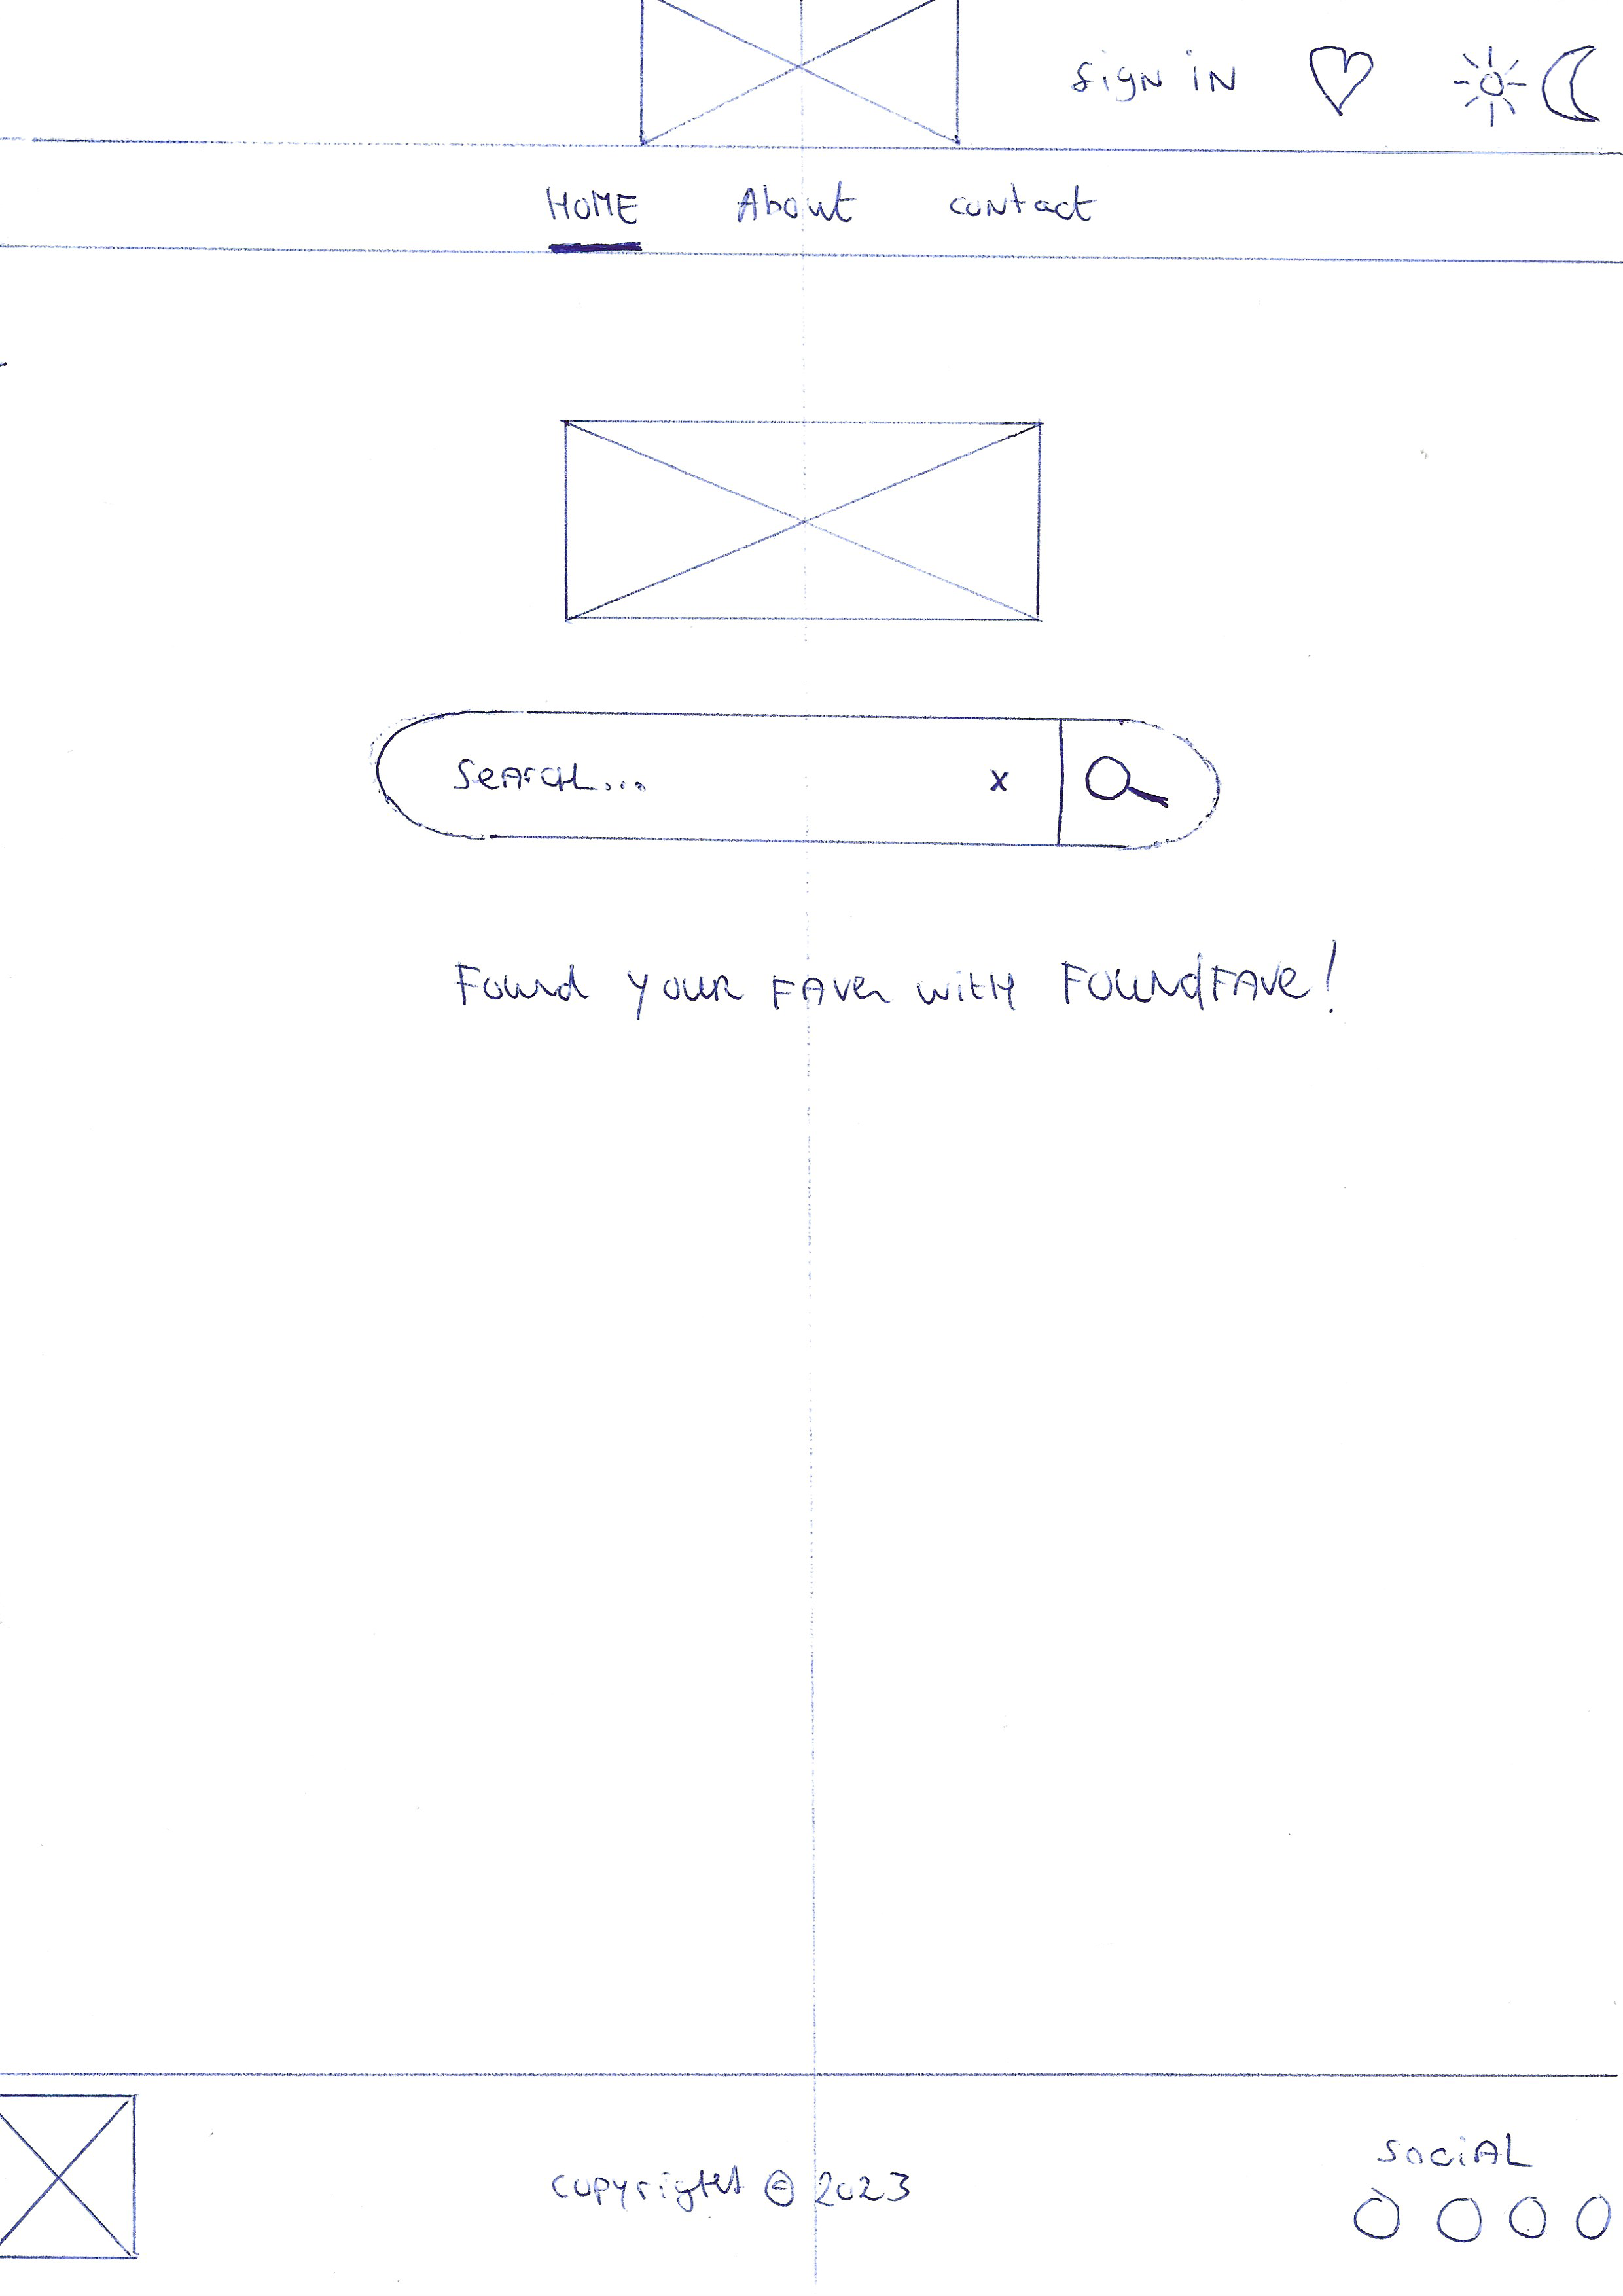 sign in
HOME About contact
Search... x
Found your Faver with FoundFave!
social
copyright © 2023